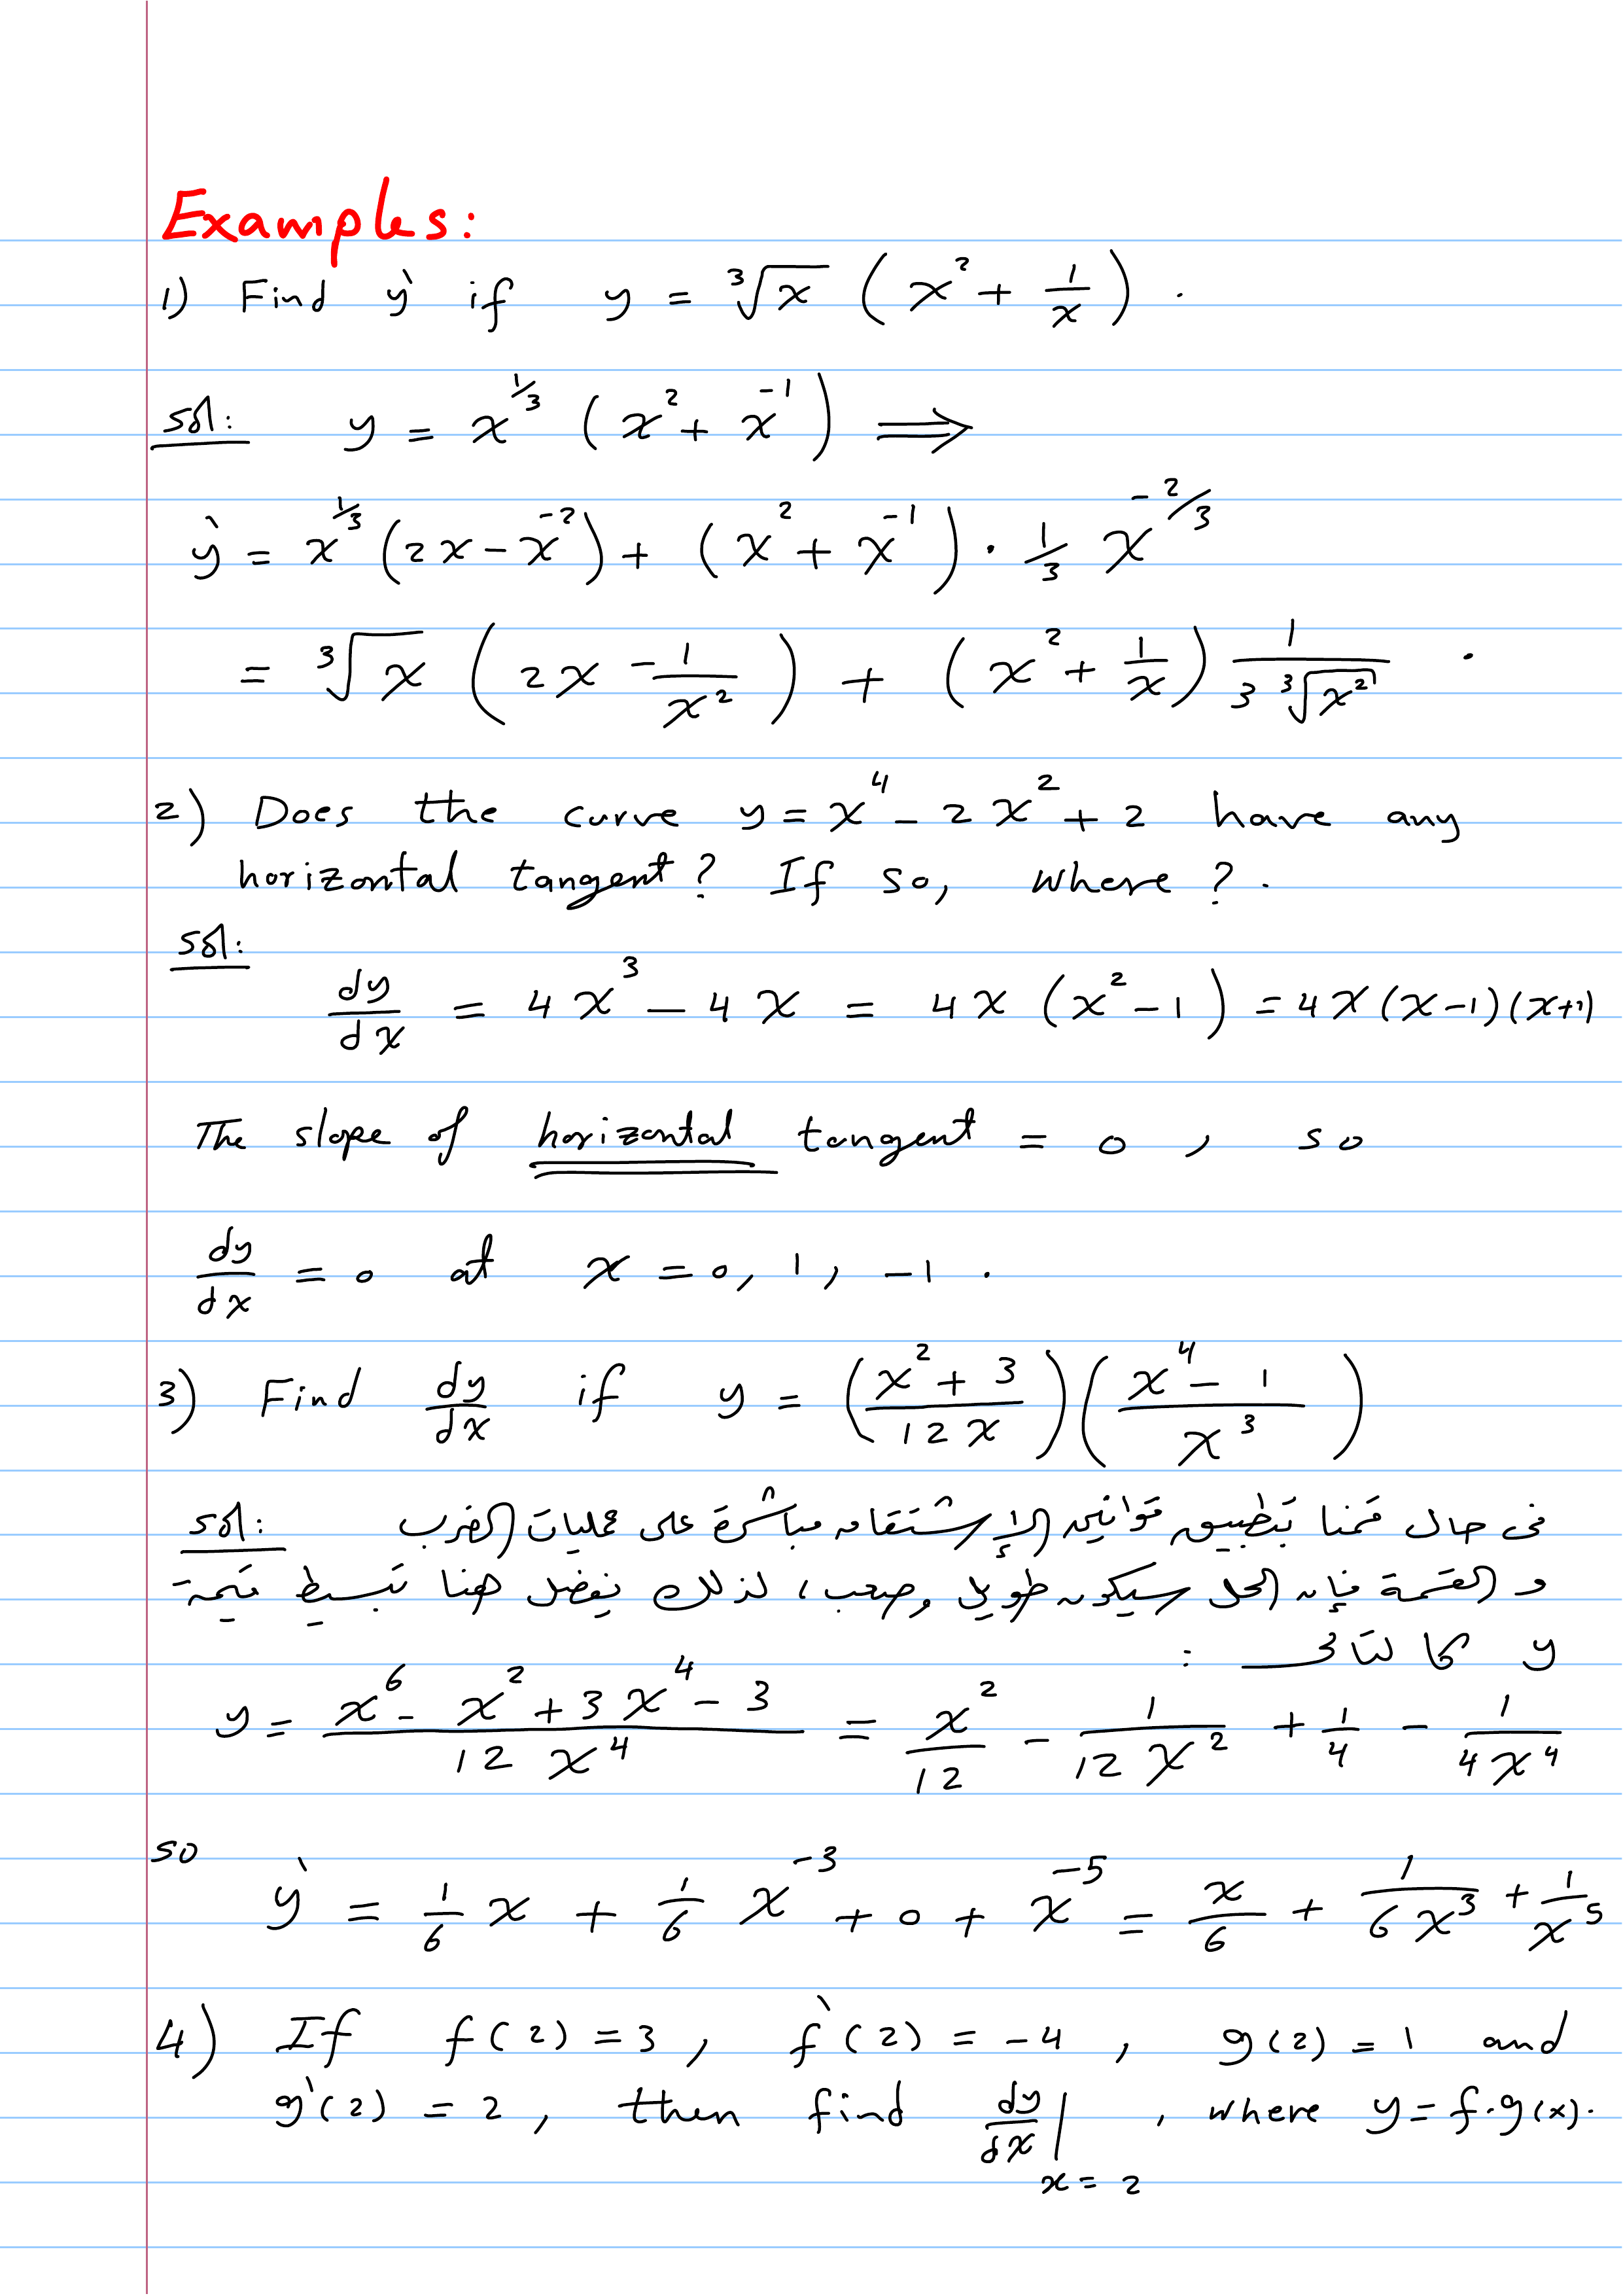 Examples:
1) Find y` if y = ∛x (x² + 1/x) .
sol: y = x^{1/3} (x² + x^{-1}) ⟹
y` = x^{1/3} (2x - x^{-2}) + (x² + x^{-1}) · 1/3 x^{-2/3}
= ∛x (2x - 1/x²) + (x² + 1/x) 1/(3 ∛x²) .
2) Does the curve y = x⁴ - 2x² + 2 have any
horizontal tangent? If so, where ? .
sol:
dy/dx = 4x³ - 4x = 4x (x² - 1) = 4x(x-1)(x+1)
The slope of horizontal tangent = 0 , so
dy/dx = 0 at x = 0, 1, -1 .
3) Find dy/dx if y = ((x² + 3)/(12x)) ((x⁴ - 1)/x³)
sol: في حال قمنا بتطبيق قوانين الإشتقاق مباشرة على عمليات الضرب
و القسمة فإن الحل سيكون طويل وصعب، لذلك يفضل هنا تبسيط قيمة
y كالتالي :
y = (x⁶ - x² + 3x⁴ - 3)/(12x⁴) = x²/12 - 1/(12x²) + 1/4 - 1/(4x⁴)
so
y` = 1/6 x + 1/6 x^{-3} + 0 + x^{-5} = x/6 + 1/(6x³) + 1/x⁵
4) If f(2) = 3 , f`(2) = -4 , g(2) = 1 and
g`(2) = 2 , then find dy/dx |_{x = 2} , where y = f·g(x).